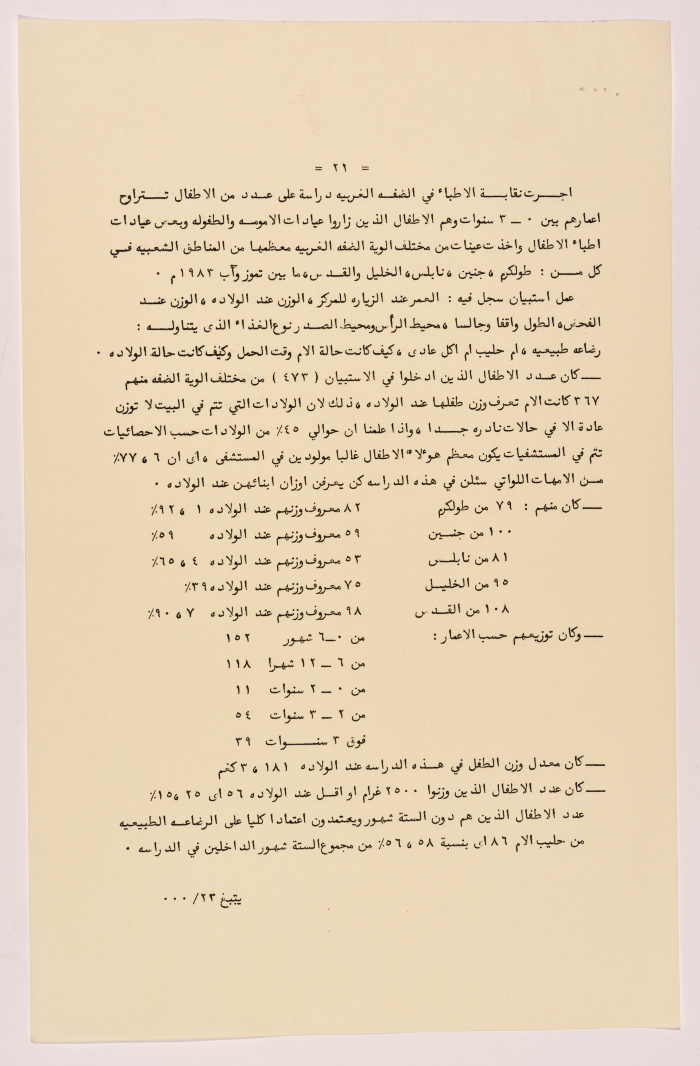 = ٢٢ =
اجـــرت نقابـة الاطباء في الضفه الغربيه دراسة على عـدد من الاطفال تــتراوح
اعمارهم بين ٠ ــ ٣ سنوات وهم الاطفال الذين زاروا عيادات الامومه والطفوله وبعض عيادات
اطباء الاطفال واخذت عينات من مختلف الوية الضفه الغربيه معظمها من المناطق الشعبيه فــي
كل مــن : طولكرم ، جنين ، نابلس ، الخليل والقدس ، ما بين تموز وآب ١٩٨٣م ٠
عمل استبيان سجل فيه : العمر عند الزياره للمركز ، الوزن عند الولاده ، الوزن عنــد
الفحص ، الطول واقفا وجالسا ، محيط الرأس ومحيط الصدر نوع الغذاء الذى يتناولــه :
رضاعه طبيعيه ، ام حليب ام اكل عادى ، كيف كانت حالة الام وقت الحمل وكيف كانت حالة الولاده ٠
ـــ كان عـدد الاطفال الذين ادخلوا في الاستبيان ( ٤٧٣ ) من مختلف الوية الضفه منهم
٣٦٧ كانت الام تعرف وزن طفلها عند الولاده ، ذلك لان الولادات التي تتم في البيت لا توزن
عادة الا في حالات نادره جــدا ، واذا علمنا ان حوالي ٤٥٪ من الولادات حسب الاحصائيات
تتم في المستشفيات يكون معظم هوٴلاء الاطفال غالبا مولودين في المستشفى ، اى ان ٦ ، ٧٧٪
مـن الامهات اللواتي سئلن في هذه الدراسه كن يعرفن اوزان ابنائهن عند الولاده ٠
ـــ كان منهم : ٧٩ من طولكرم ٨٢ معروف وزنهم عند الولاده ١ ، ٩٢٪
١٠٠ من جنــين ٥٩ معروف وزنهم عند الولاده ٥٩٪
٨١ من نابلــس ٥٣ معروف وزنهم عند الولاده ٤ ، ٦٥٪
٩٥ من الخليــل ٧٥ معروف وزنهم عند الولاده ٣٩٪
١٠٨ من القدس ٩٨ معروف وزنهم عند الولاده ٧ ، ٩٠٪
ـــ وكان توزيعهم حسب الاعمار : من ٠ــ٦ شهور ١٥٢
من ٦ ــ ١٢ شهرا ١١٨
من ٠ ــ ٢ سنوات ١١
من ٢ ــ ٣ سنوات ٥٤
فوق ٣ سنـــوات ٣٩
ـــ كان معدل وزن الطفل في هــذه الدراسه عند الولاده ١٨١ ، ٣ كغم
ـــ كان عدد الاطفال الذين وزنوا ٢٥٠٠ غرام او اقل عند الولاده ٥٦ اى ٢٥ ، ١٥٪
عدد الاطفال الذين هم دون الستة شهور ويعتمدون اعتمادا كليا على الرضاعــه الطبيعيه
من حليب الام ٨٦ اى بنسبة ٥٨ ، ٥٦٪ من مجموع الستة شهور الداخلين في الدراسه ٠
يتبع ٢٣/ ٠٠٠